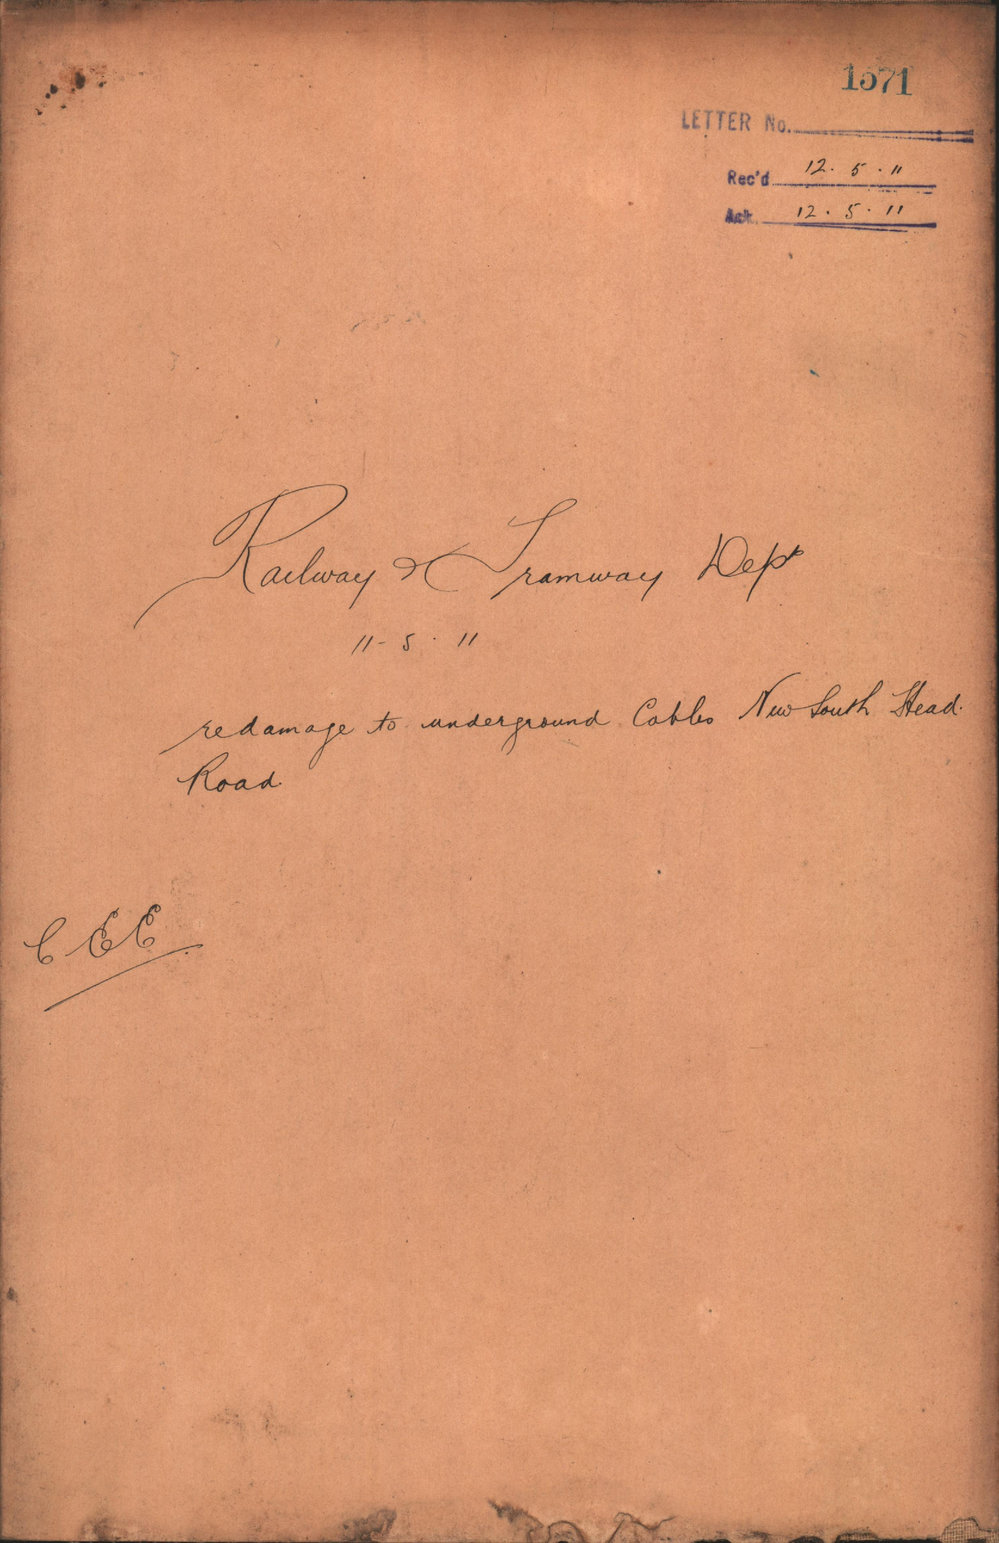 1571
LETTER No.
Rec'd 12. 5. 11
Ack. 12. 5. 11
Railway & Tramway Dept
11-5.11
re damage to underground Cables New South Head
Road
C E E